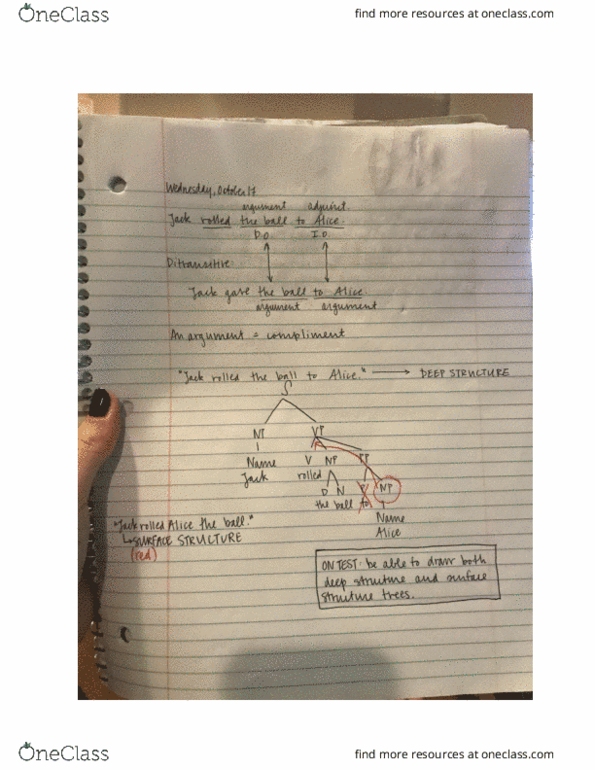 OneClass
find more resources at oneclass.com
Wednesday, October 17
argument adjunct
Jack rolled the ball to Alice.
D.O. I.O.
Ditransitive:
Jack gave the ball to Alice.
argument argument
An argument = compliment
"Jack rolled the ball to Alice." → DEEP STRUCTURE
S
NP VP
Name V NP PP
Jack rolled
D N P NP
the ball to
Name
Alice
"Jack rolled Alice the ball."
↳ SURFACE STRUCTURE
(red)
ON TEST: be able to draw both
deep structure and surface
structure trees.
OneClass
find more resources at oneclass.com